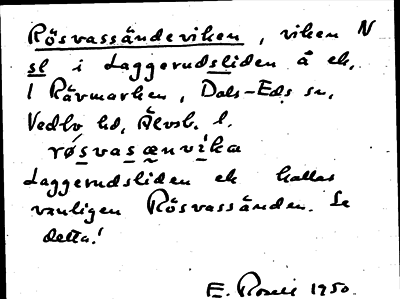 Rösvassändeviken, viken N
sl i Laggerudsliden å ek.
1 Rävmarken, Dals-Eds sn,
Vedbo hd, Älvsb. l.
røsvasænvika
Laggerudsliden ek kallas
vanligen Rösvassänden. Se
detta!
E. 1950.